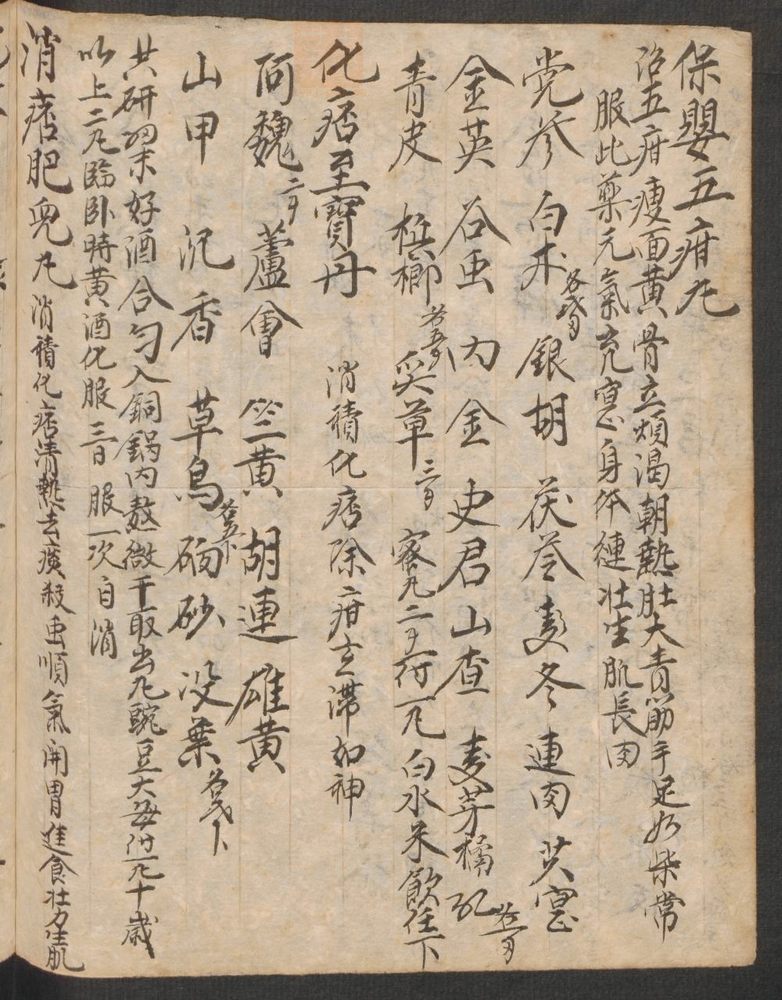 保嬰五疳凡
治五疳瘦面黄骨立煩渴朝熱肚大青筋手足如柴常
服此藥元氣充實身体健壮生肌長肉
党参 白术 各戋 銀胡 茯苓 麦冬 連肉 芡實
金英 谷虫 内金 史君 山查 麦芽 橘
青皮 槟榔 草 三 蜜凡二 一凡白水米飲任下
化痞至寶丹 消積化痞除疳去滯如神
阿魏 蘆會 竺黄 胡連 雄黄
山甲 沉香 草烏 硇砂 没藥
共研細末好酒合匀入銅鍋内熬微干取出凡豌豆大每付一凡十歲
以上二凡臨卧時黄酒化服三日服一次自消
消痞肥兒凡 消積化痞清熱去痰殺虫順氣開胃進食壮力生肌